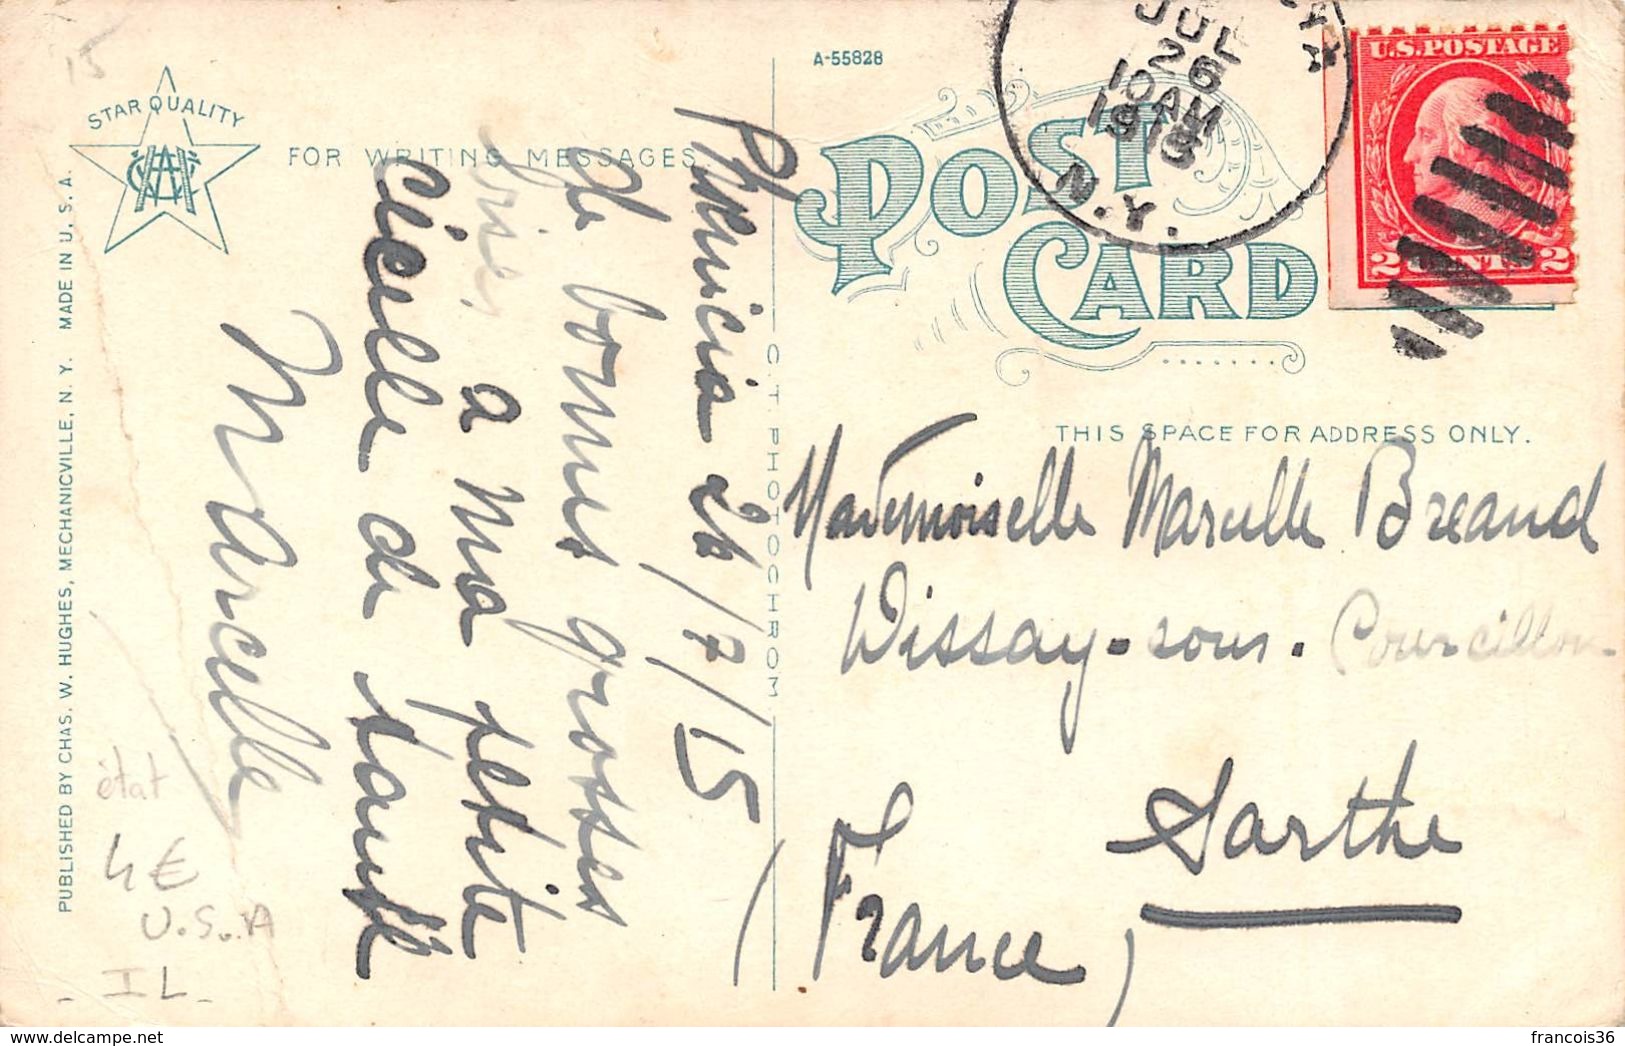 15
STAR QUALITY
FOR WRITING MESSAGES
A-55828
POST CARD
JUL
26
10 AM
1915
N.Y.
U.S. POSTAGE
2 CENTS 2
THIS SPACE FOR ADDRESS ONLY.
PUBLISHED BY CHAS. W. HUGHES, MECHANICVILLE, N. Y. MADE IN U. S. A.
C. T. PHOTOCHROM
Phœnicia 26/7/15
de bonnes grosses
bises a ma petite
de
Marcelle
Mademoiselle Marcelle Breand
Wissay-sous-Courcillon
Sarthe
(France)
état
4€
U.S.A
- IL -
francois36